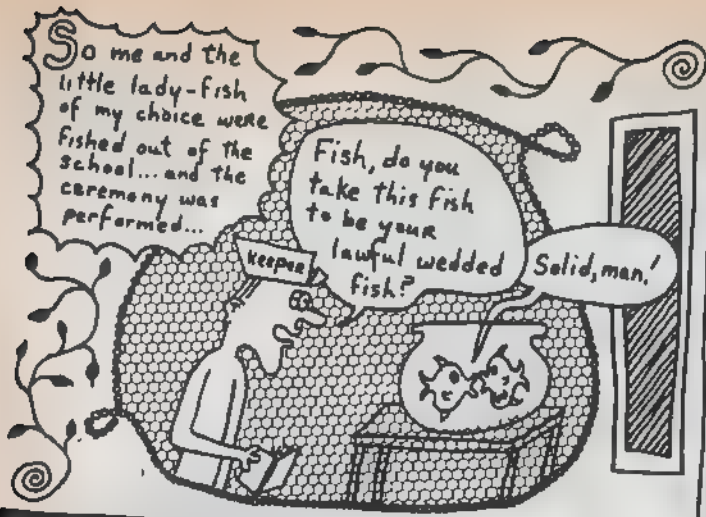 So me and the
little lady-fish
of my choice were
fished out of the
school... and the
ceremony was
performed...
Fish, do you
take this fish
to be your
lawful wedded
fish?
Solid, man!
Keeper